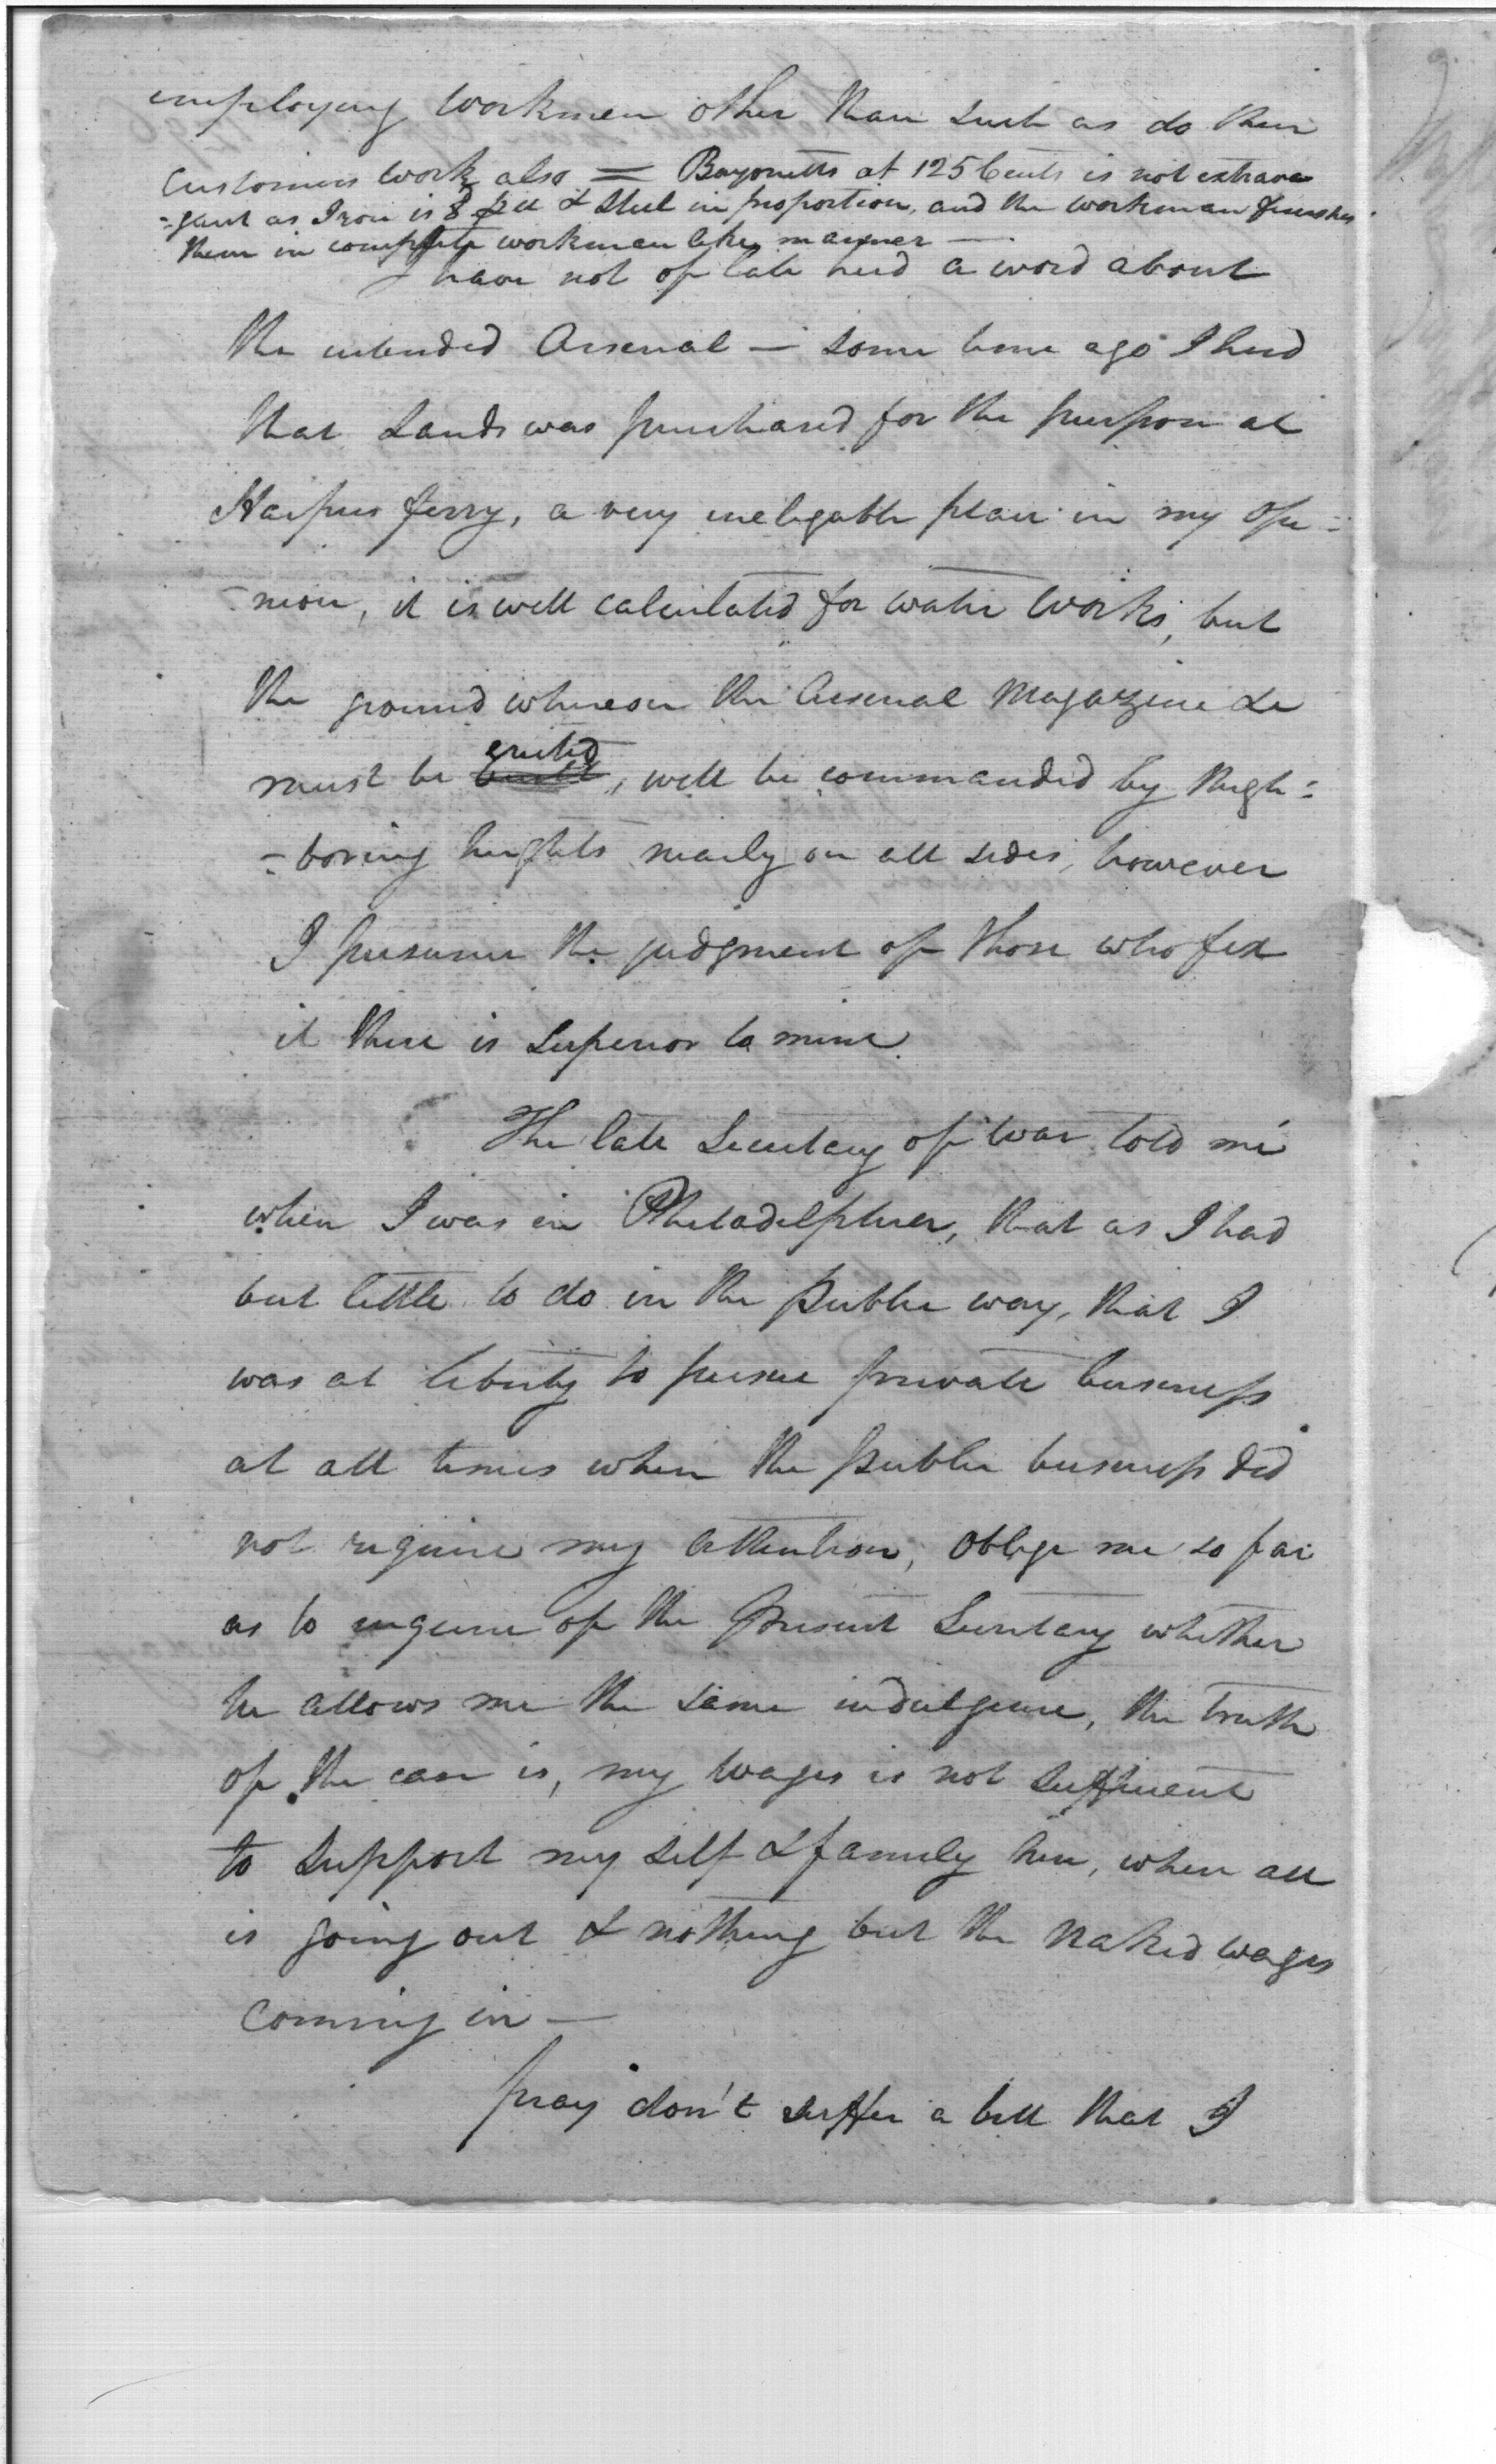 employing workmen other than such as do their
customers work also = Bayonetts at 125 Cents is not extrava
-gant as Iron is 8 & Steel in proportion, and the workman finishes
them in complete workman like manner —
I have not of late herd a word about
the intended Arsenal — some time ago I herd
that Lands was purchased for the purpose at
Harpers ferry, a very ineligable place in my opi=
=nion, it is well calculated for water works, but
the ground whereon the Arsenal Magazine &c
must be built erected, will be commanded by Neigh=
=boring heights nearly on all sides, however
I presume the judgment of those who fix
it there is Superior to mine
The late Secretary of war told me
when I was in Philadelphia, that as I had
but little to do in the public way, that I
was at liberty to pursue private business
at all times when the public business did
not require my attention, oblige me so far
as to enquire of the present Secretary whether
he allows me the same indulgence, the truth
of the case is, my wages is not sufficient
to support my self & family here, when all
is going out & nothing but the naked wages
coming in —
pray don't suffer a bill that I